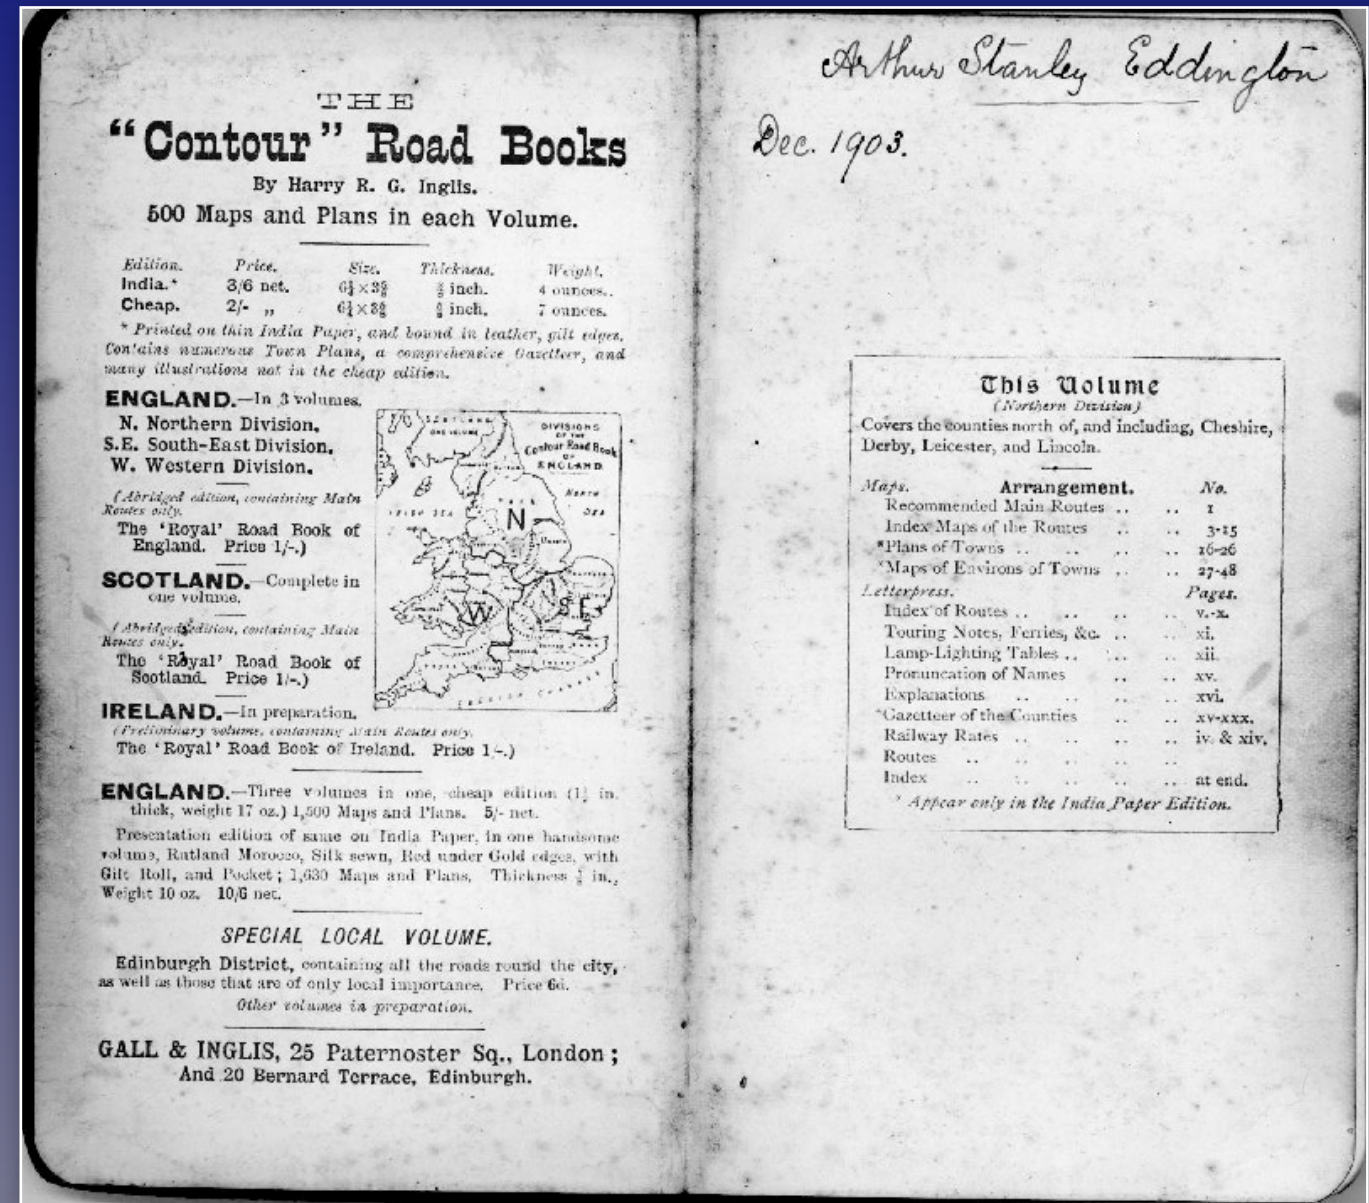 THE
“Contour” Road Books
By Harry R. G. Inglis.
500 Maps and Plans in each Volume.
Edition. Price. Size. Thickness. Weight.
India.* 3/6 net. inch. 4 ounces.
Cheap. 2/- „ inch. 7 ounces.
* Printed on thin India Paper, and bound in leather, gilt edges.
Contains numerous Town Plans, a comprehensive Gazetteer, and
many illustrations not in the cheap edition.
ENGLAND.—In 3 volumes.
N. Northern Division.
S.E. South-East Division.
W. Western Division.
(Abridged edition, containing Main
Routes only.
The ‘Royal’ Road Book of
England. Price 1/-.)
SCOTLAND.—Complete in
one volume.
(Abridged edition, containing Main
Routes only.
The ‘Royal’ Road Book of
Scotland. Price 1/-.)
IRELAND.—In preparation.
(Preliminary volume, containing Main Routes only.
The ‘Royal’ Road Book of Ireland. Price 1/-.)
SCOTLAND
ONE VOLUME
DIVISIONS
OF THE
Contour Road Book
OF
ENGLAND
NORTH
SEA
IRISH SEA
N
W
S.E.
ENGLISH CHANNEL
ENGLAND.—Three volumes in one, cheap edition in.
thick, weight 17 oz.) 1,500 Maps and Plans. 5/- net.
Presentation edition of same on India Paper, in one handsome
volume, Rutland Morocco, Silk sewn, Red under Gold edges, with
Gilt Roll, and Pocket; 1,630 Maps and Plans. Thickness in.,
Weight 10 oz. 10/6 net.
SPECIAL LOCAL VOLUME.
Edinburgh District, containing all the roads round the city,
as well as those that are of only local importance. Price 6d.
Other volumes in preparation.
GALL & INGLIS, 25 Paternoster Sq., London;
And 20 Bernard Terrace, Edinburgh.
Arthur Stanley Eddington
Dec. 1903.
This Volume
(Northern Division)
Covers the counties north of, and including, Cheshire,
Derby, Leicester, and Lincoln.
Maps. Arrangement. No.
Recommended Main Routes .. .. 1
Index Maps of the Routes .. .. 3-15
*Plans of Towns .. .. .. .. 16-26
*Maps of Environs of Towns .. .. 27-48
Letterpress. Pages.
Index of Routes .. .. .. .. v.-x.
Touring Notes, Ferries, &c. .. .. xi.
Lamp-Lighting Tables .. .. .. xii.
Pronuncation of Names .. .. xv.
Explanations .. .. .. .. xvi.
*Gazetteer of the Counties .. .. xv-xxx.
Railway Rates .. .. .. .. iv. & xiv.
Routes .. .. .. .. ..
Index .. .. .. .. .. at end.
* Appear only in the India Paper Edition.